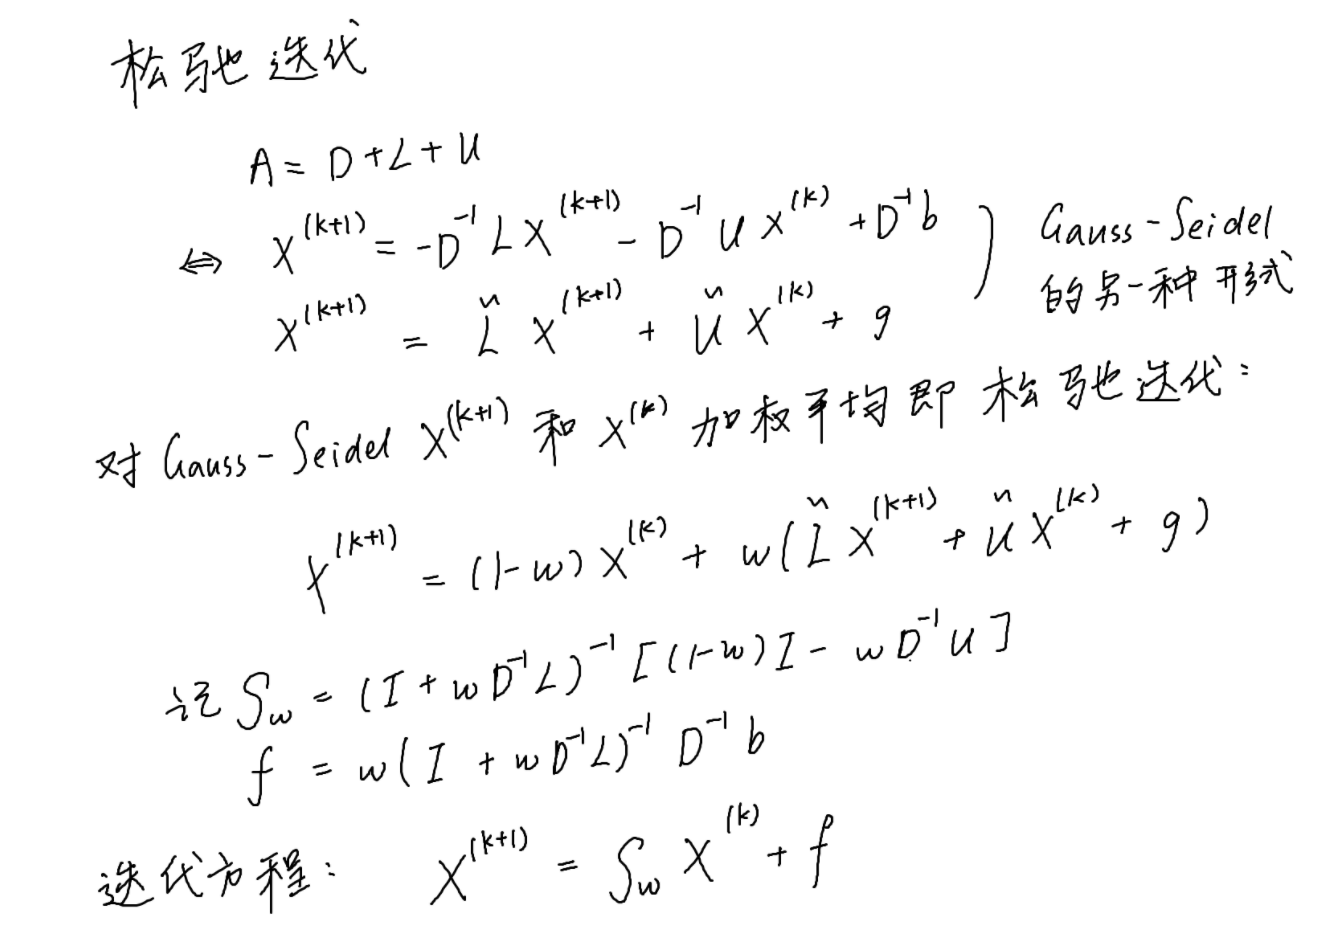 松弛迭代
A = D + L + U
⇔ X^(k+1) = -D^-1 L X^(k+1) - D^-1 U X^(k) + D^-1 b
X^(k+1) = L̃ X^(k+1) + Ũ X^(k) + g
Gauss-Seidel
的另一种形式
对 Gauss-Seidel X^(k+1) 和 X^(k) 加权平均即 松弛迭代:
X^(k+1) = (1-w) X^(k) + w( L̃ X^(k+1) + Ũ X^(k) + g )
记 S_w = (I + w D^-1 L)^-1 [(1-w) I - w D^-1 U]
f = w( I + w D^-1 L)^-1 D^-1 b
迭代方程: X^(k+1) = S_w X^(k) + f